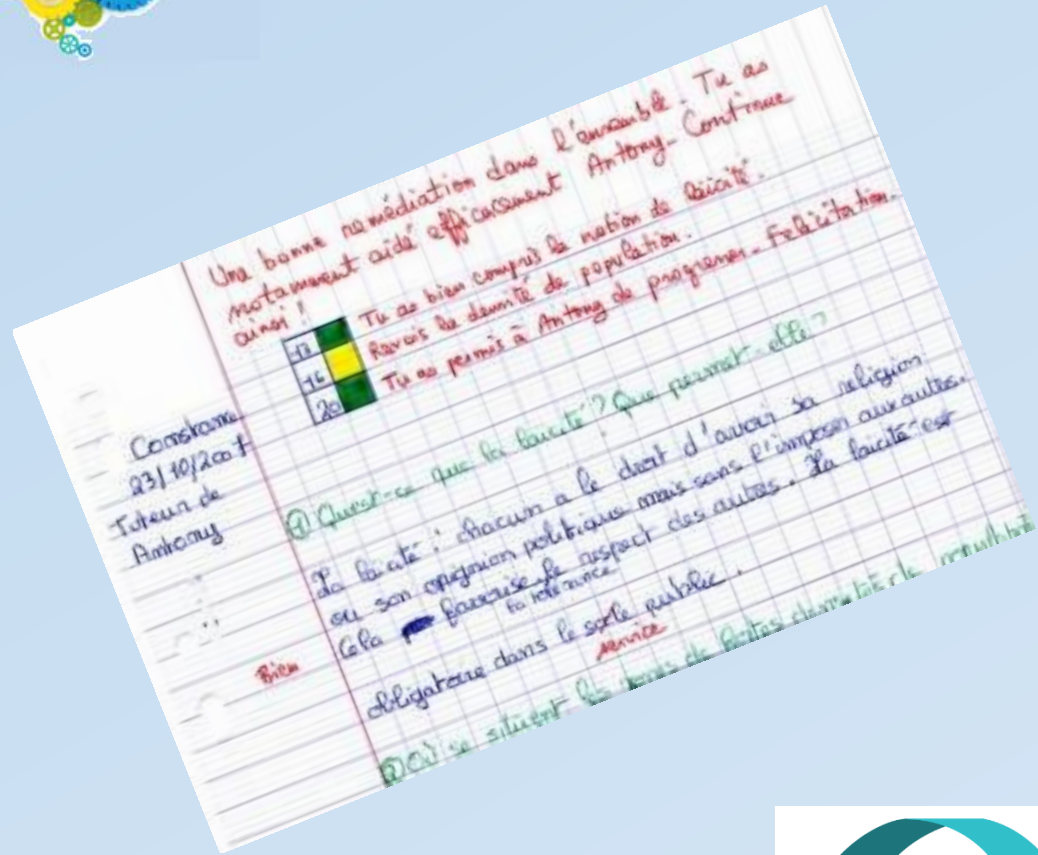 Une bonne remédiation dans l'ensemble - Tu as
notamment aidé efficacement Antony - Continue
ainsi !
12 Tu as bien compris la notion de laïcité.
16 Revois la densité de population.
20 Tu as permis à Antony de progresser. Félicitation.
Constance
23/10/2007
Tuteur de
Antony
① Quest-ce que la laïcité ? Que permet-elle ?
La laicité : chacun a le droit d'avoir sa religion
ou son opignion politique mais sans l'imposer aux autres.
Cela favorise le respect des autres. La laicité est
la tolérance
obligatoire dans le public.
service
Bien
② Où se situent les de fortes densités de